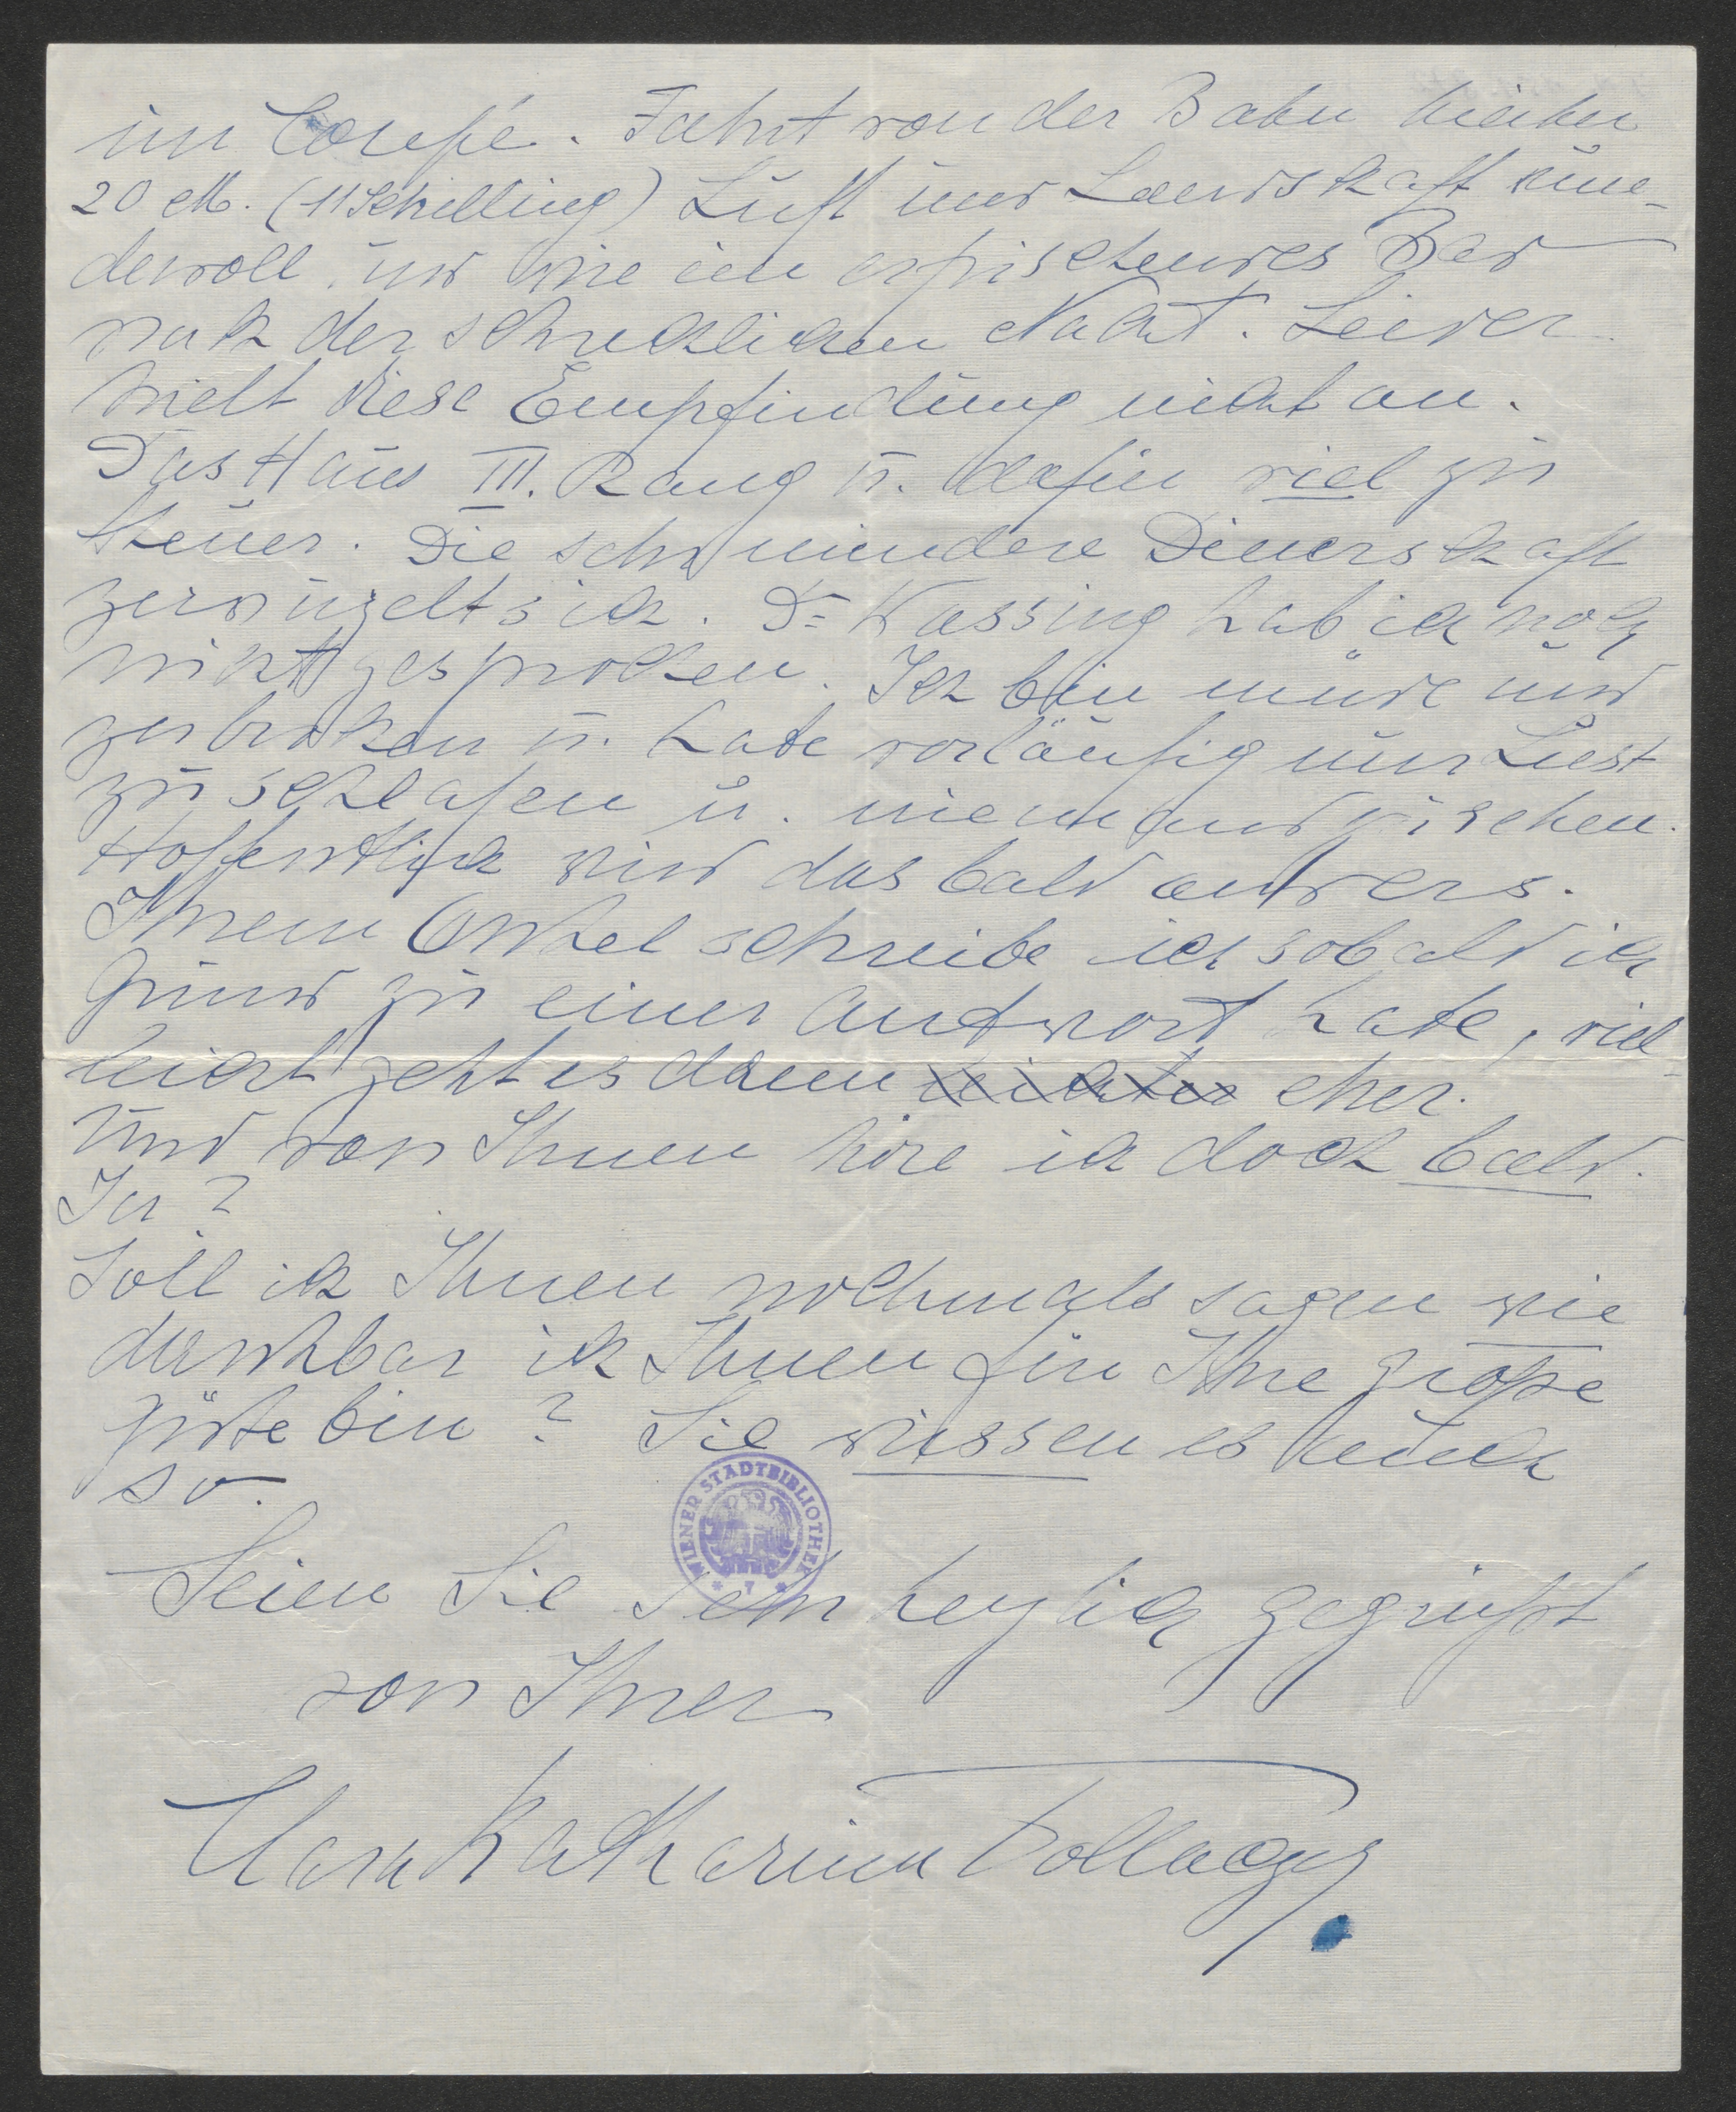 im Coupé. Fahrt von der Bahn hierher
20 M. (11 Schilling) Luft und Landschaft
dervoll, und wie ein erfrischendes Bad
nach der schrecklichen Nacht. Leider
hielt diese Empfindung nicht an.
Das Haus III. Rang u. dafür viel zu
teuer. Die schwindere Dienerschaft
zerwuzelt sich. Dr Kassing hab ich noch
nicht gesprochen. Ich bin müde und
zerbrochen u. habe vorläufig nur Lust
zu schlafen u. niemand zu sehen.
Hoffentlich wird das bald anders.
Ihrem Onkel schreibe ich sobald ich
Grund zu einer Antwort habe, viel-
leicht geht es dann eher.
Und von Ihnen höre ich doch bald.
Ja?
Soll ich Ihnen nochmals sagen wie
dankbar ich Ihnen für Ihre große
Güte bin? Sie wissen es auch
so.
Seien Sie sehr herzlich gegrüßt
von Ihrer
Clara Katharina Pollaczek
WIENER STADTBIBLIOTHEK
* 7 *